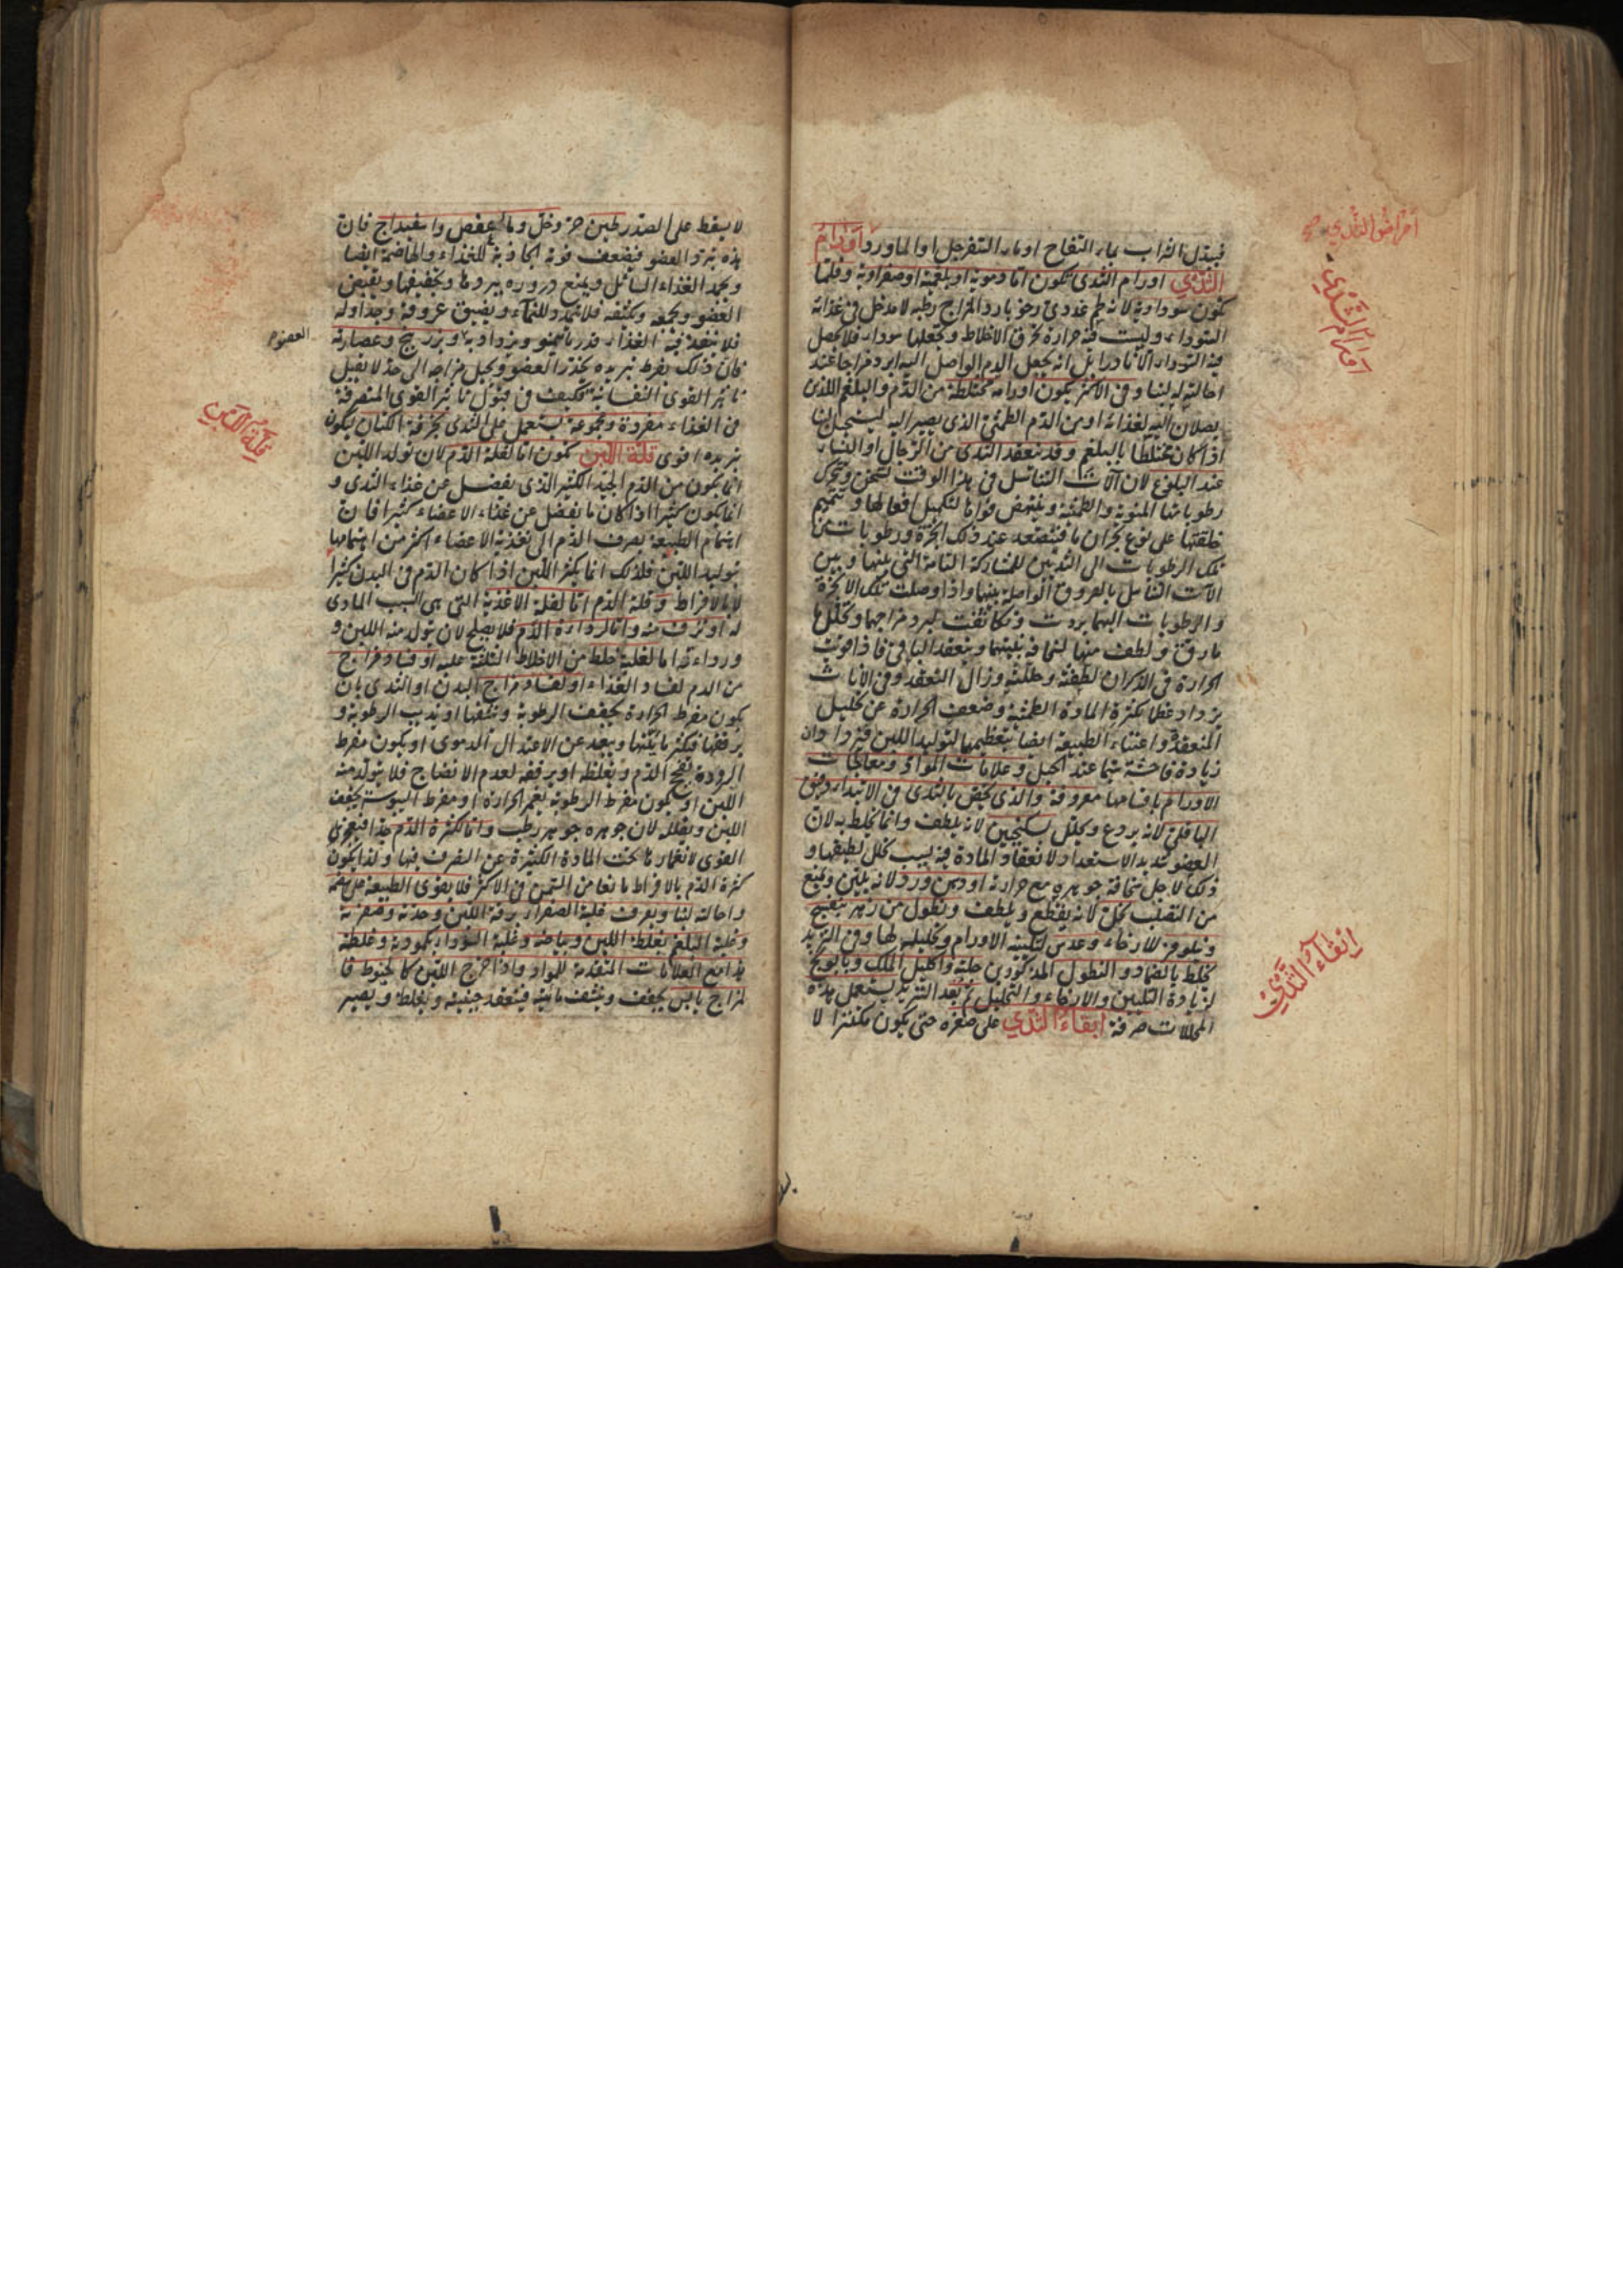 امراض الثدي
اورام الثدي
فيبدل الشراب بماء التفاح او ماء السفرجل او الماورد اورام
الثدي اورام الثدى تكون اما دموية او بلغمية او صفراوية وقلما
تكون سوداوية لانه لحم غددى رخو بارد المزاج رطبه لا مدخل فى غذائه
السوداء وليست فيه حرارة تحرق الاخلاط وتجعلها سوداء فلا تحصل
فيه السوداء الا نادرا بل انه يجعل الدم الواصل اليه ابرد مزاجا عند
احالته له لبنا وفى الاكثر يكون اورامه مختلطة من الدم والبلغم اللذى
يصلان اليه لغذائه او من الدم الطمثى الذى يصير اليه ليستحيل لبنا
اذا كان مختلطا بالبلغم وقد ينعقد الثدى من الرجال او النساء
عند البلوغ لان آلات التناسل فى هذا الوقت تسخن وتتحرك
رطوباتها المنوية والطمثية وينتهض قواها لتكميل افعالها وتتميم
خلقتها على نوع بحران ما فيتصعد عند ذلك ابخرة ورطوبات من
تلك الرطوبات الى الثديين للمشاركة التامة التى بينها وبين
الآت التناسل بالعروق الواصلة بينها واذا وصلت تلك الابخرة
والرطوبات اليهما بردت وتكاثفت لبرد مزاجهما وتحلل
مارق ولطف منها لسخافة بنيتهما وينعقد الباقى فاذا قويت
الحرارة فى الذكران لطفته وحللته وزال التعقد وفى الاناث
يزداد عظما لكثرة المادة الطمثية وضعف الحرارة عن تحليل
المنعقد واعتناء الطبيعة ايضا بتعظيمها لتوليد اللبن فيزدادان
زيادة فاحشة سيما عند الحبل وعلامات المواد ومعالجات
الاورام باقسامها معروفة والذى يختص بالثدى فى الابتداء دقيق
الباقلى لانه يردع ويحلل بسكنجبين لانه يلطف وانما يخلط به لان
العضو شديد الاستعداد لانعقاد المادة فيه بسبب تحلل لطيفها و
ذلك لاجل سخافة جوهره مع حرارته او دهن ورد لانه يلين ويمنع
من التصلب بخل لانه يقطع ويلطف ونطول من زهر بنفسج
ونيلوفر للارخاء وعدس لتليينه الاورام وتحليله لها وفى التزيد
يخلط بالضماد والنطول المذكورين حلبة واكليل الملك وبابونج
لزيادة التليين والارخاء والتحليل ثم بعد التزيد يستعمل بهذه
المحللات صرفة ابقاء الثدي على صغره حتى يكون مكتنزا لا
ابقاء الثدي
لا يسقط على الصدر طين حر وخل وماء عفص واسفيداج فان
هذه تبرد العضو فيضعف قوته الجاذبة للغذاء والهاضمة ايضا
ويجمد الغذاء السائل ويمنع دروره ببردها وتجفيفها ويقبض
العضو ويجمعه ويكثفه فلا يتمدد للنماء ويضيق عروقه وجداوله
فلا ينفذ فيه الغذاء قدر ما ينمو ويزداد به وبزر بنج وعصارته
العضو
فان ذلك بفرط تبريده يخدر العضو ويحيل مزاجه الى حد لا يقبل
تاثير القوى النفسانية فكيف فى قبول تاثير القوى المتصرفة
فى الغذاء مفردة ومجموعة يستعمل على الثدى بخرقة الكتان ليكون
تبريده اقوى قلة اللبن تكون اما لقلة الدم لان تولد اللبن
قلة اللبن
انما يكون من الدم الجيد الكثير الذى يفضل عن غذاء الثدى و
انما يكون كثيرا اذا كان ما يفضل عن غذاء الاعضاء كثيرا فان
اهتمام الطبيعة بصرف الدم الى تغذية الاعضاء اكثر من اهتمامها
بتوليد اللبن فلذلك انما يكثر اللبن اذا كان الدم فى البدن كثيرا
لا بالافراط وقلة الدم اما لقلة الاغذية التى هى السبب المادى
له او نزف منه واما لرداءة الدم فلا يصلح لان يتولد منه اللبن و
ورداءته اما لغلبة خلط من الاخلاط الثلثة عليه او فساد مزاج
من الدم لفساد الغذاء او لفساد مزاج البدن او الثدى بان
يكون مفرط الحرارة يجفف الرطوبة وينشفها او يذيب الرطوبة و
يرققها فيكثر مائيتها ويبعد عن الاعتدال الدموى او يكون مفرط
البرودة يفجج الدم ويغلظه او يرققه لعدم الانضاج فلا يتولد منه
اللبن او يكون مفرط الرطوبة يغمر الحرارة او مفرط اليبوسة يجفف
اللبن ويقلله لان جوهره جوهر رطب واما لكثرة الدم جدا فيعجز
القوى لانغمارها تحت المادة الكثيرة عن التصرف فيها ولذا يكون
كثرة الدم بالافراط مانعا من السمن فى الاكثر فلا يقوى الطبيعة على هضمه
واحالته لبنا ويعرف غلبة الصفراء برقة اللبن وحدته وصفرته
وغلبة البلغم بغلظ اللبن وبياضه وغلبة السوداء بكمودته وغلظه
هذا مع العلامات المتقدمة للمواد واذا خرج اللبن كالخيوط فا
لمزاج يابس يجفف وينشف مائيته فينعقد جبنيته ويغلظ ويصير